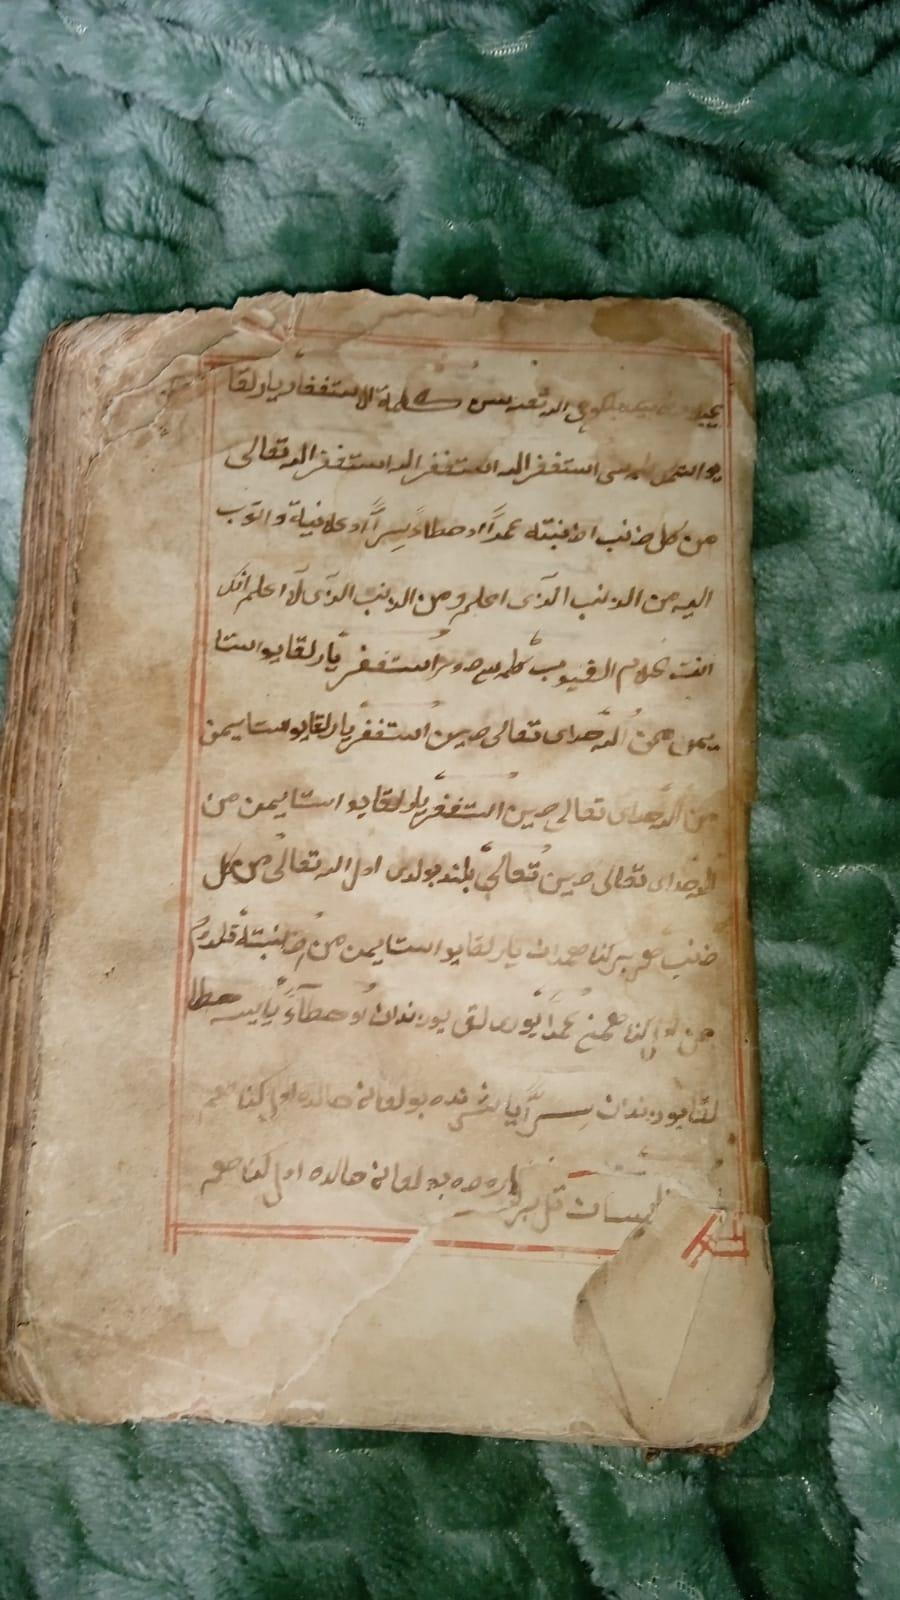 كلمة الاستغفار يارلقا
استغفر الله استغفر الله استغفر الله تعالى
من كل ذنب اذنبته عمدًا او خطاءً سرًّا او علانية واتوب
اليه من الذنب الذى اعلم ومن الذنب الذى لا اعلم انك
انت علام الغيوب استغفر يارلقايو استا
يمن من الله خداى تعالى دين استغفر يارلقايو استايمن
من الله خداى تعالى دين استغفر يارلقايو استايمن من
الله خداى تعالى دين تعالى بلند بولدى اول الله تعالى من كل
ذنب هر بر كناهدان يارلقايو استايمن من اذنبته قلدم
من اول كناهمنى عمدًا اورلق يوزندان او خطاءً يا خطا
لق يوزندان سرًّا يا يشرنده بولغان حالده اول كناهم
بولغان حالده اول كناهم